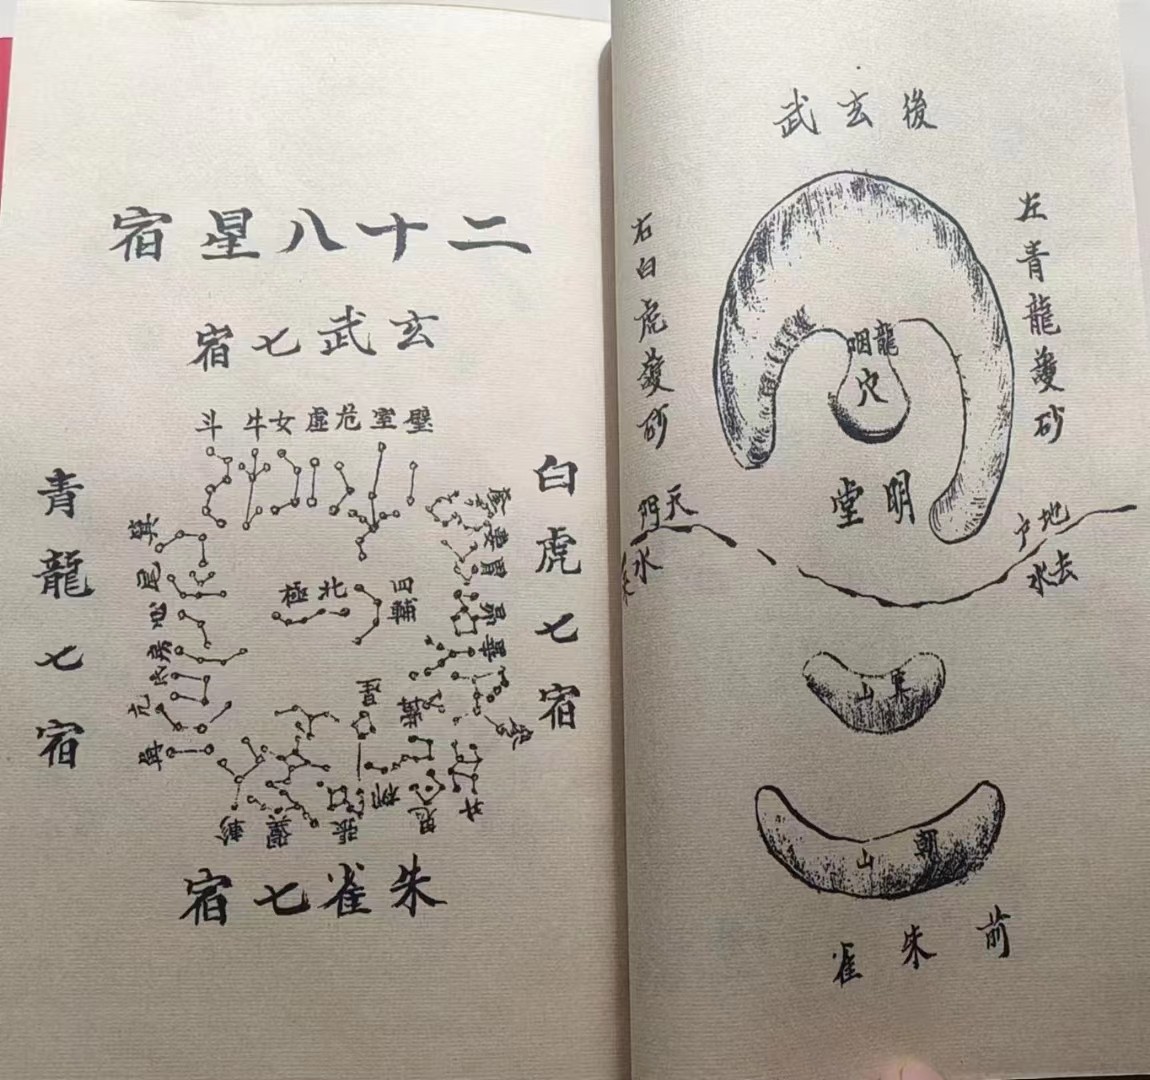 二十八星宿
玄武七宿
壁室危虛女牛斗
青龍七宿
白虎七宿
箕
尾
心
房
氐
亢
角
北極
四輔
奎
婁
胃
昴
畢
觜
參
井
鬼
柳
星
張
翼
軫
朱雀七宿
後玄武
左青龍護砂
右白虎護砂
龍咽
穴
明堂
天門
來水
地户
水去
案山
朝山
前朱雀